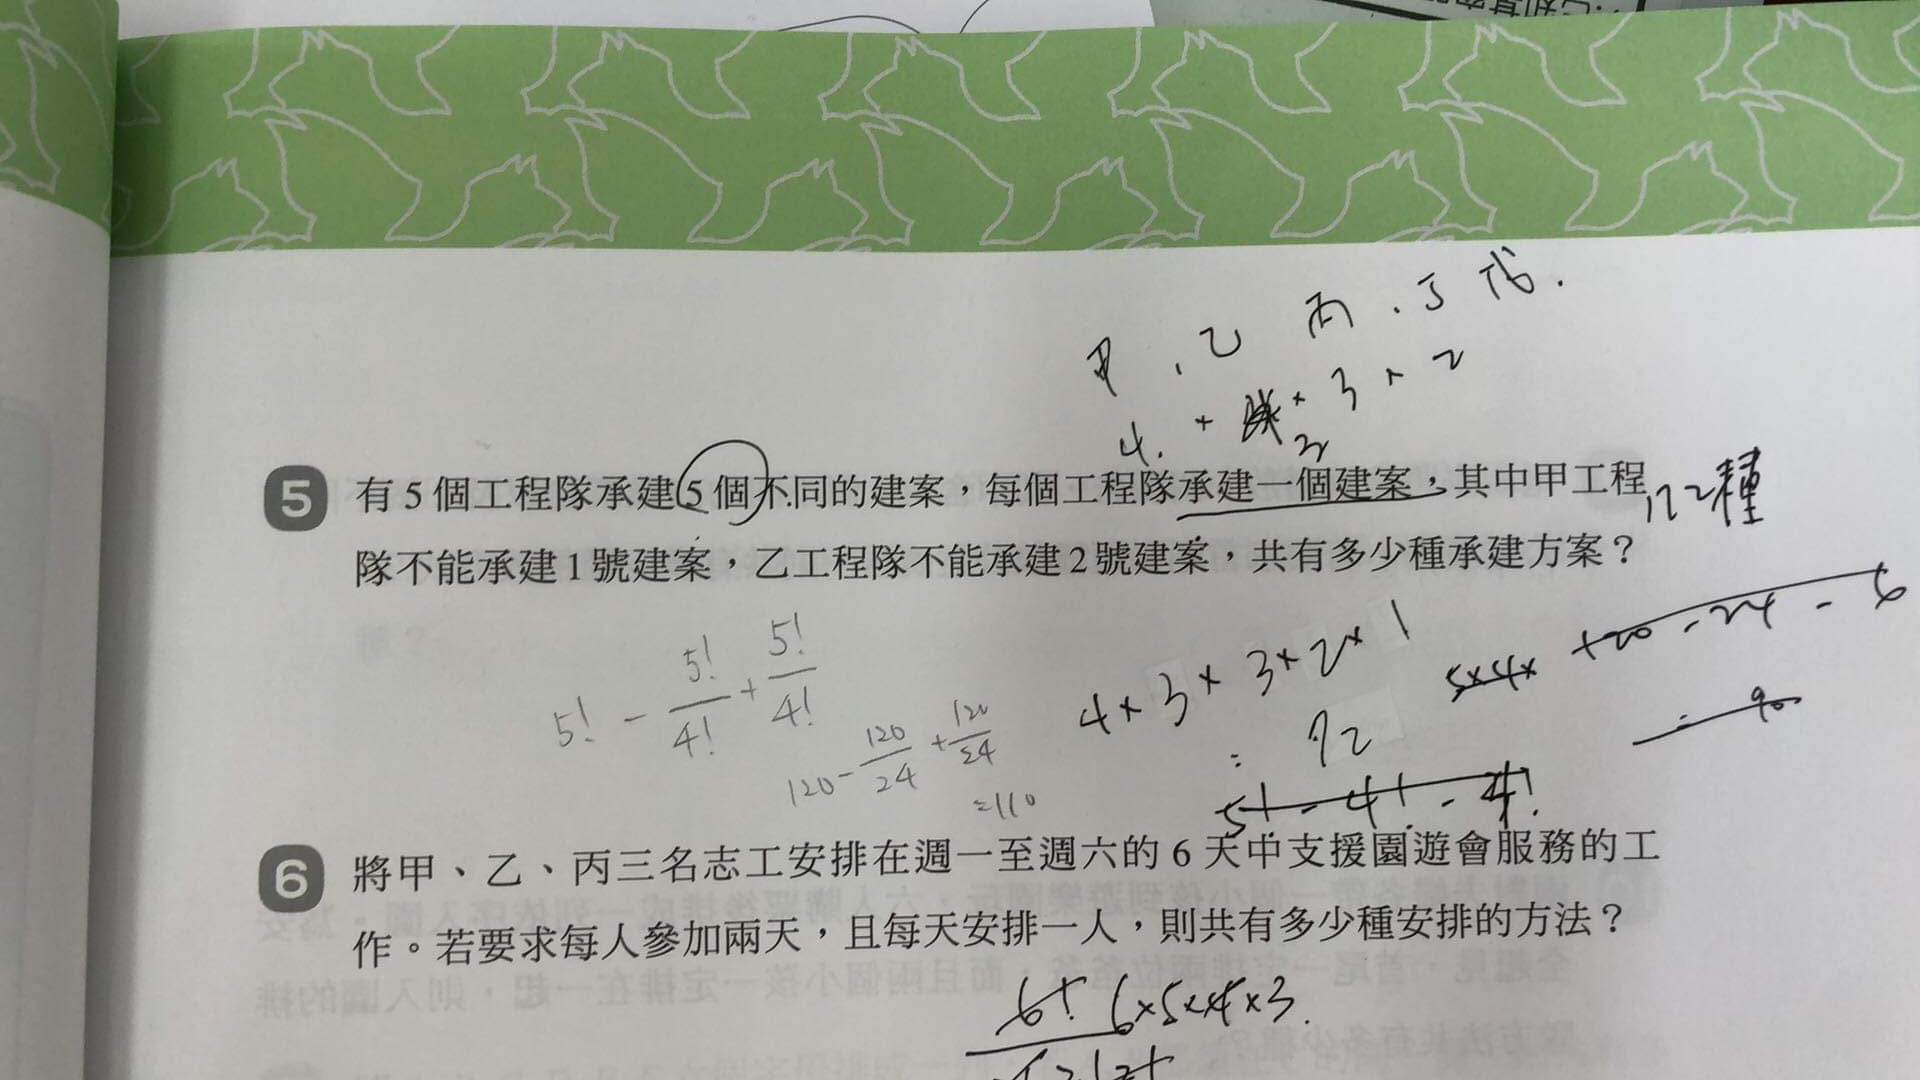 甲、乙 丙、丁 戊.
4. × 3 × 3 × 2
5 有 5 個工程隊承建 5 個不同的建案，每個工程隊承建一個建案，其中甲工程
隊不能承建 1 號建案，乙工程隊不能承建 2 號建案，共有多少種承建方案？
種
5! - 5!/4! + 5!/4!
120 - 120/24 + 120/24
=110
4×3×3×2×1
= 72
5×4×
5! - 4! - 4!
6 將甲、乙、丙三名志工安排在週一至週六的 6 天中支援園遊會服務的工
作。若要求每人參加兩天，且每天安排一人，則共有多少種安排的方法？
6! 6×5×4×3